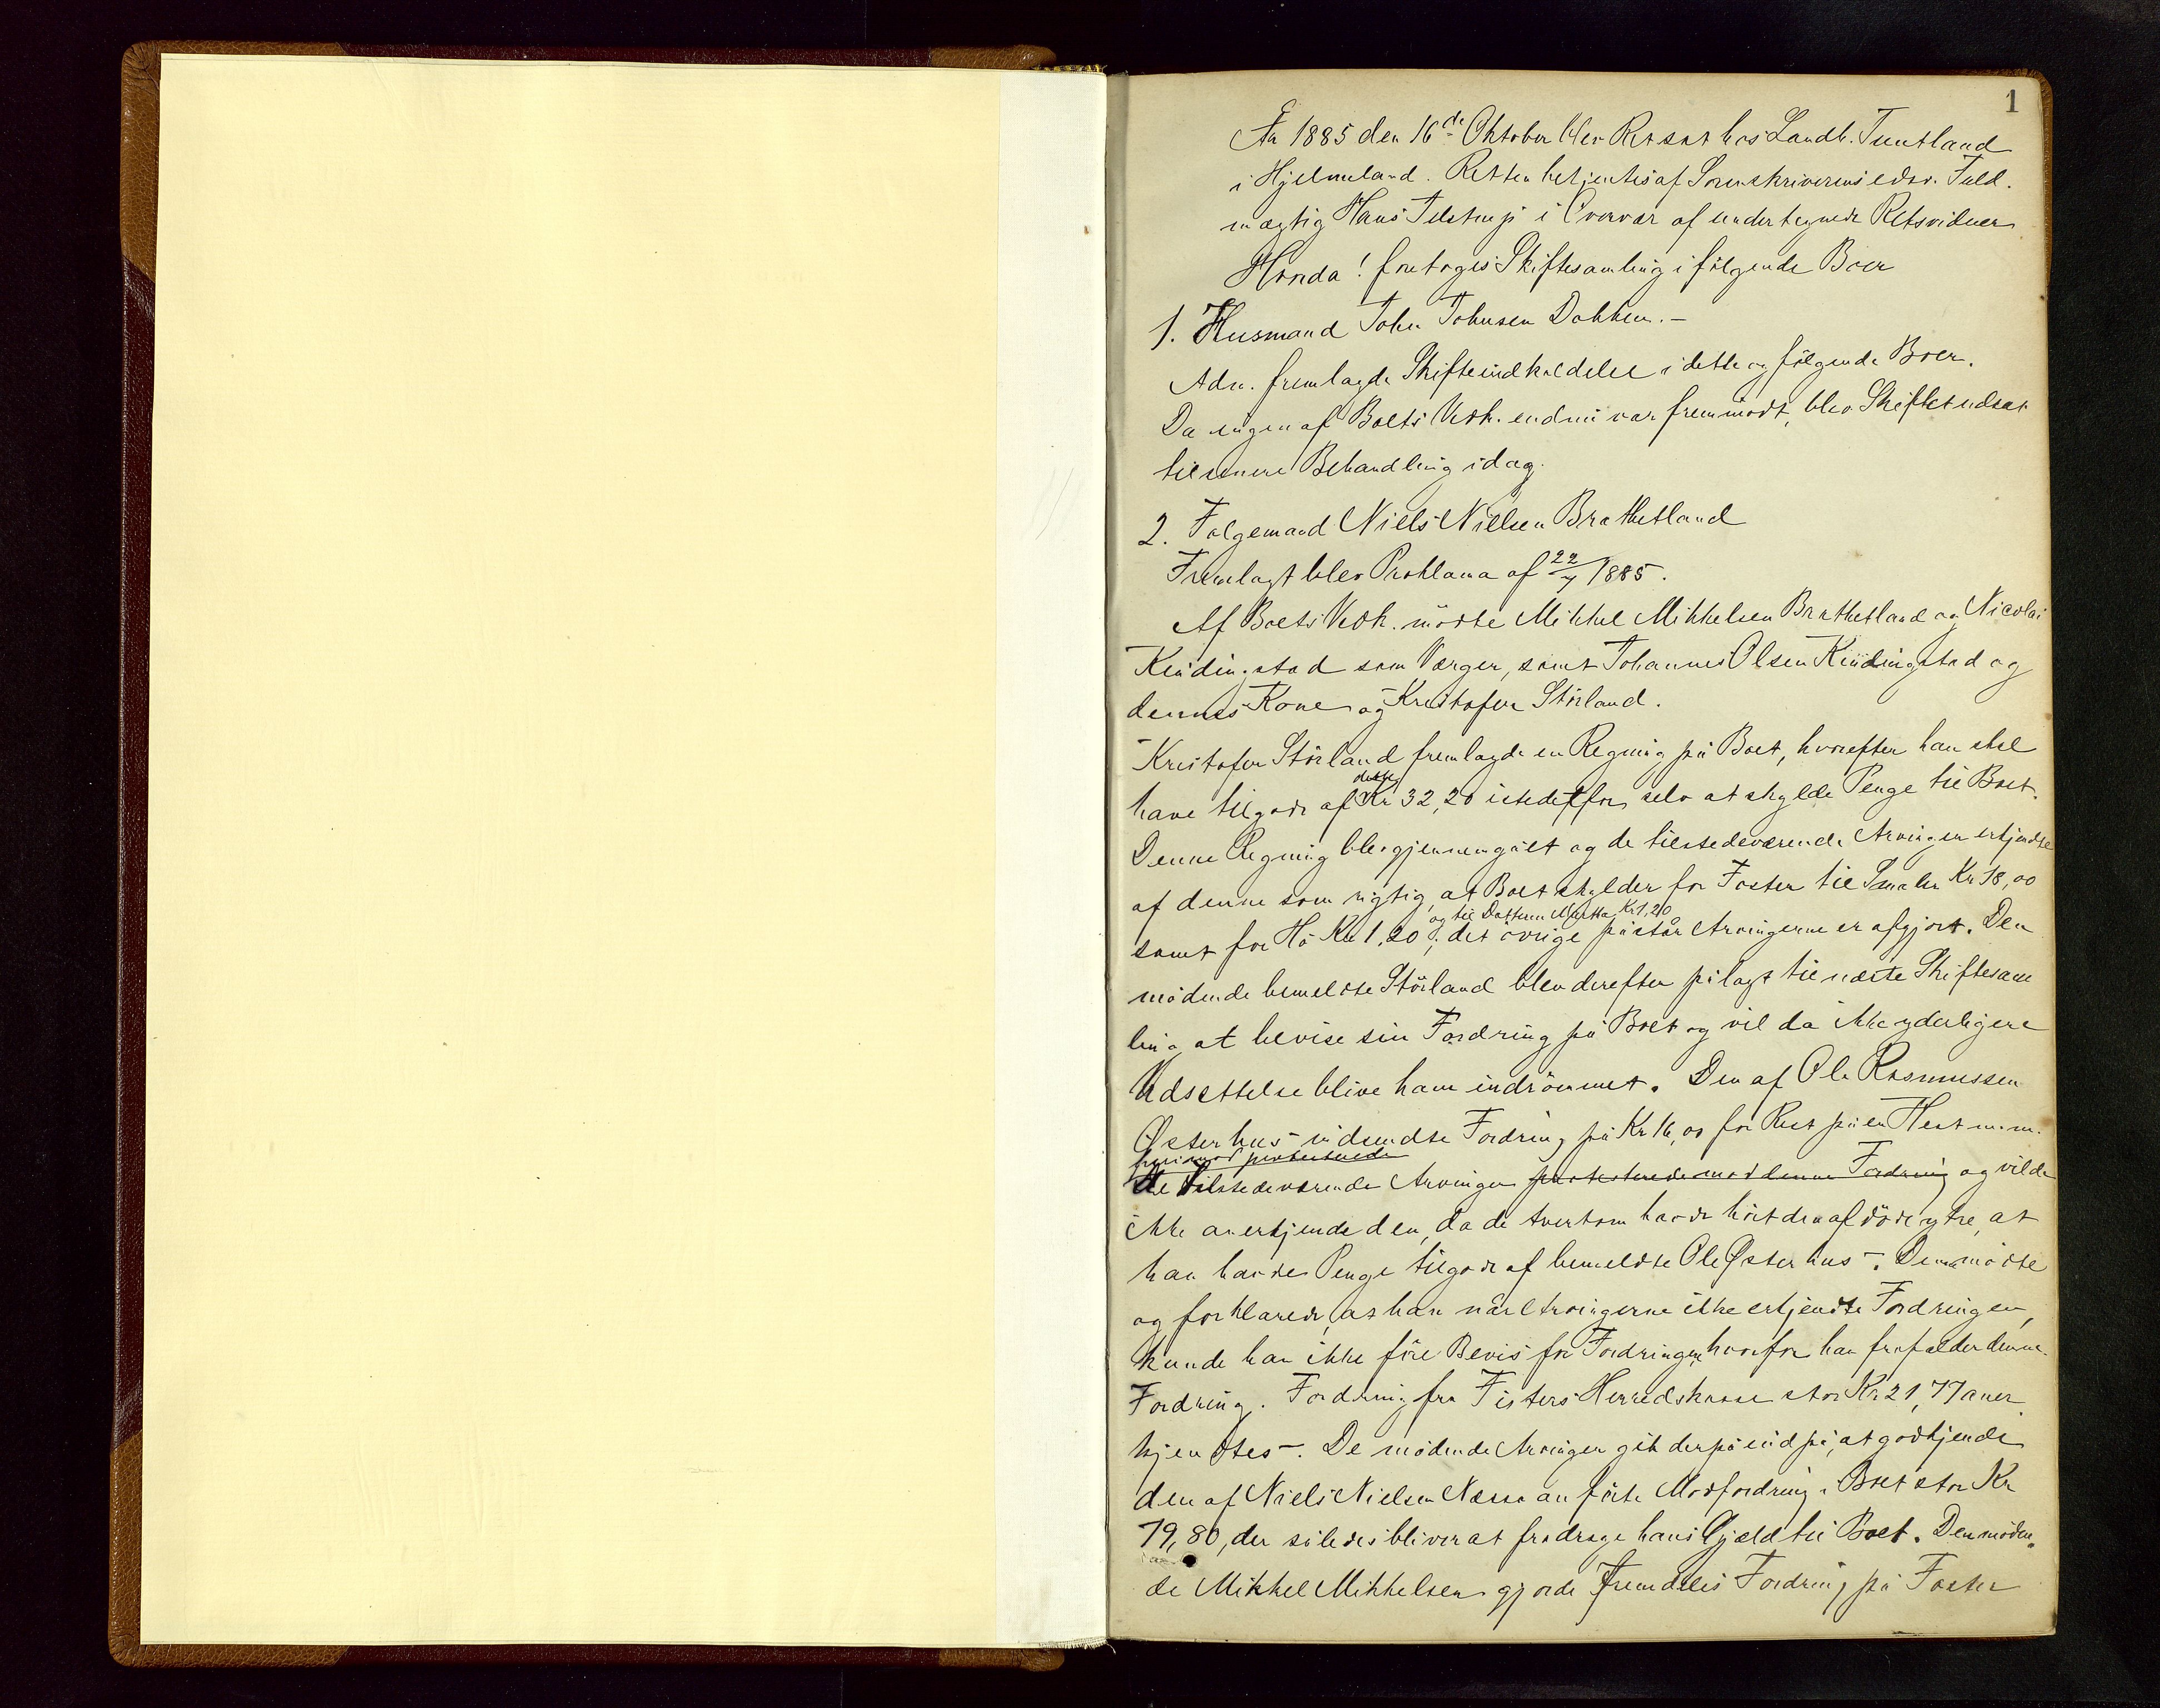 1
År 1885 den 16de Oktober blev Ret sat hos Landh. Tuntland
i Hjelmeland. Retten betjentes af Sorenskriverens edsv. Fuld-
mægtig Hans Tilstrup i Overvær af undertegnede Retsvidner
Hvorda! foretoges Skiftesamling i følgende Boer
1. Husmand John Johnsen Dokken.-
Adm. fremlagde Skifteindkaldelse i dette og følgende Boer.
Da ingen af Boets Vedk. endnu var fremmødt, blev Skiftet udsat
til senere Behandling idag.
2. Følgemand Niels Nielsen Brathetland
Fremlagt blev Proklama af 22/7 1885.
Af Boets Vedk. mödte Mikkel Mikkelsen Brathetland og Nicolai
Kindingstad som Værger, samt Johannes Olsen Kindingstad og
dennes Kone og Kristofer Störland.
Kristofer Störland fremlagde en Regning på Boet, hvorefter han skal
have tilgode af dette Kr 32,20 istedetfor selv at skylde Penge til Boet.
Denne Regning blev gjennemgået og de tilstedeværende Arvinger erkjendte
af denne som rigtig, at Boet skylder for Foster til Smaler Kr 18,00
samt for Hö Kr 1,20 og til Datteren Martha Kr 1,20; det övrige påstår Arvingerne er afgjort. Den
mödende bemeldte Störland blev derefter pålagt til næste Skiftesam
ling at bevise sin Fordring på Boet og vil da ikke yderligere
Udsettelse blive ham indrömmet. Den af Ole Rasmussen
Østerhus indsendte Fordring på Kr 16,00 for Rest på en Hest m.m.
herimod protesterede
de tilstedeværende Arvinger protesterede mod denne Fordring og vilde
ikke anerkjende den, da de tvertom havde hört den afdöde ytre, at
han havde Penge tilgode af bemeldte Ole Østerhus. Denne mödte
og forklarede, at han når Arvingerne ikke erkjendte Fordringen,
kunde han ikke före Bevis for Fordringen, hvorfor han frafalder denne
Fordring. Fordring fra Fisters Herredskasse stor Kr 21,77 aner
kjendtes. De mödende Arvinger gik derpå ind på, at godkjende
den af Niels Nielsen Næsse anförte Modfordring i Boet stor Kr
79,80, der således bliver at fradrage hans Gjæld til Boet. Den möden-
de Mikkel Mikkelsen gjorde fremdeles Fordring på Foster